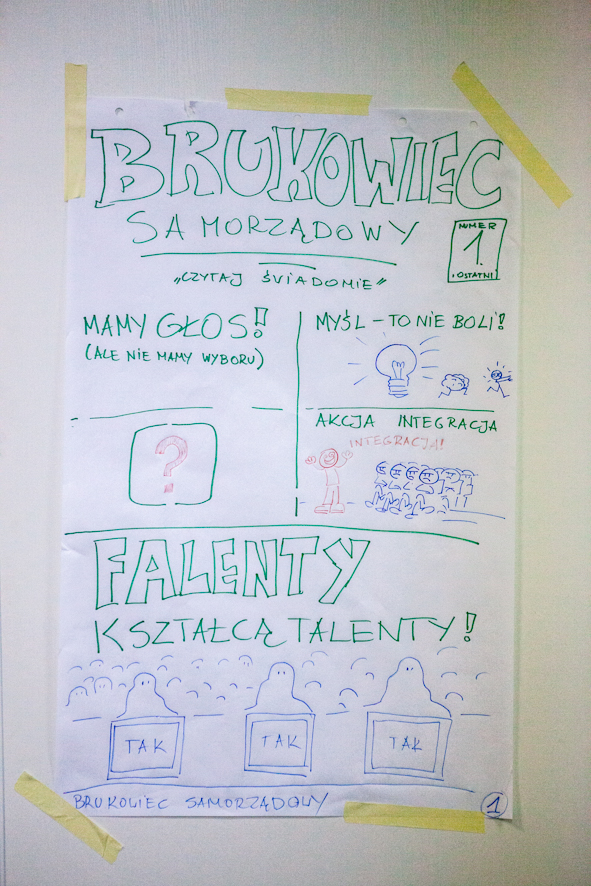 BRUKOWIEC
SAMORZĄDOWY
NUMER
1.
OSTATNI
„CZYTAJ ŚWIADOMIE"
MAMY GŁOS!
(ALE NIE MAMY WYBORU)
?
MYŚL – TO NIE BOLI!
AKCJA INTEGRACJA
INTEGRACJA!
FALENTY
KSZTAŁCĄ TALENTY!
TAK
TAK
TAK
BRUKOWIEC SAMORZĄDOWY
1